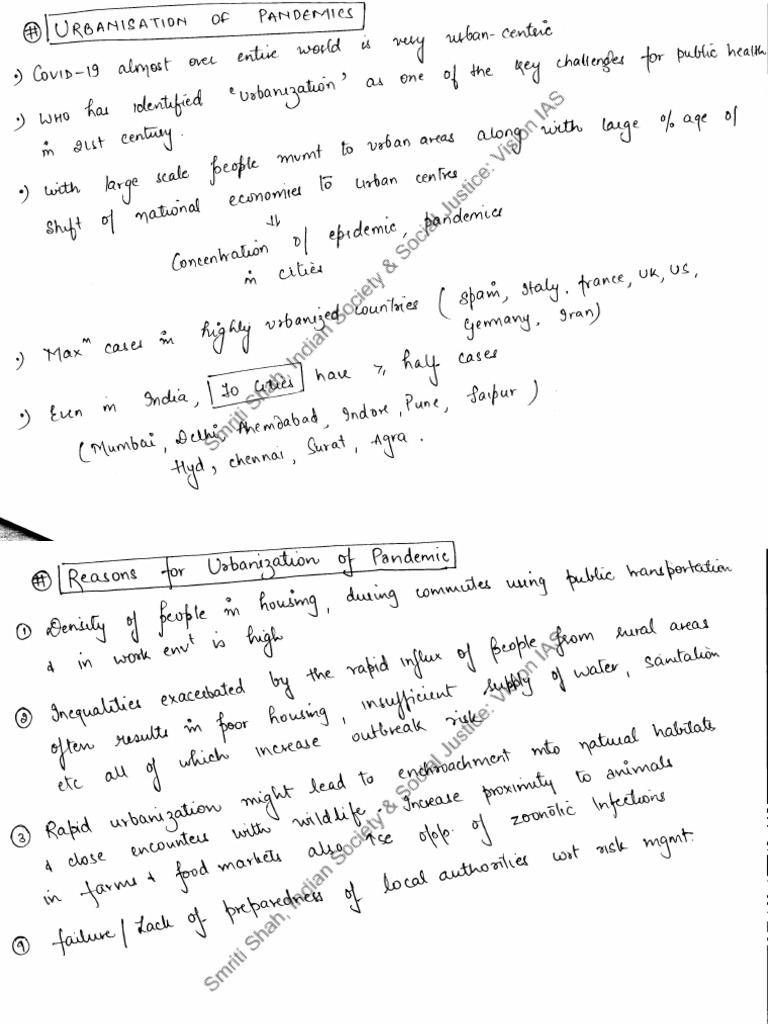 # URBANISATION OF PANDEMICS
•) COVID-19 almost over entire world is very urban-centric
•) WHO has identified 'Urbanization' as one of the key challenges for public health
in 21st century.
•) with large scale people mvmt to urban areas along with large % age of
shift of national economies to urban centres
⇓
Concentration of epidemic, pandemics
in cities
•) Maxᵐ cases in highly urbanized countries (Spain, Italy, France, UK, US,
Germany, Iran)
•) Even in India, 10 cities have ≥ half cases
(Mumbai, Delhi, Ahemdabad, Indore, Pune, Jaipur)
Hyd, chennai, Surat, Agra.
Smriti Shah, Indian Society & Social Justice: Vision IAS
# Reasons for Urbanization of Pandemic
① Density of people in housing, during commutes using public transportation
& in work envᵗ is high
② Inequalities exacerbated by the rapid influx of people from rural areas
often results in poor housing, insufficient supply of water, sanitation
etc all of which increase outbreak risk
③ Rapid urbanization might lead to enchroachment into natural habitats
& close encounters with wildlife. Increase proximity to animals
in farms & food markets also ↑se opp. of zoonotic Infections
④ failure/Lack of preparedness of local authorities wrt risk mgmt.
Smriti Shah, Indian Society & Social Justice: Vision IAS